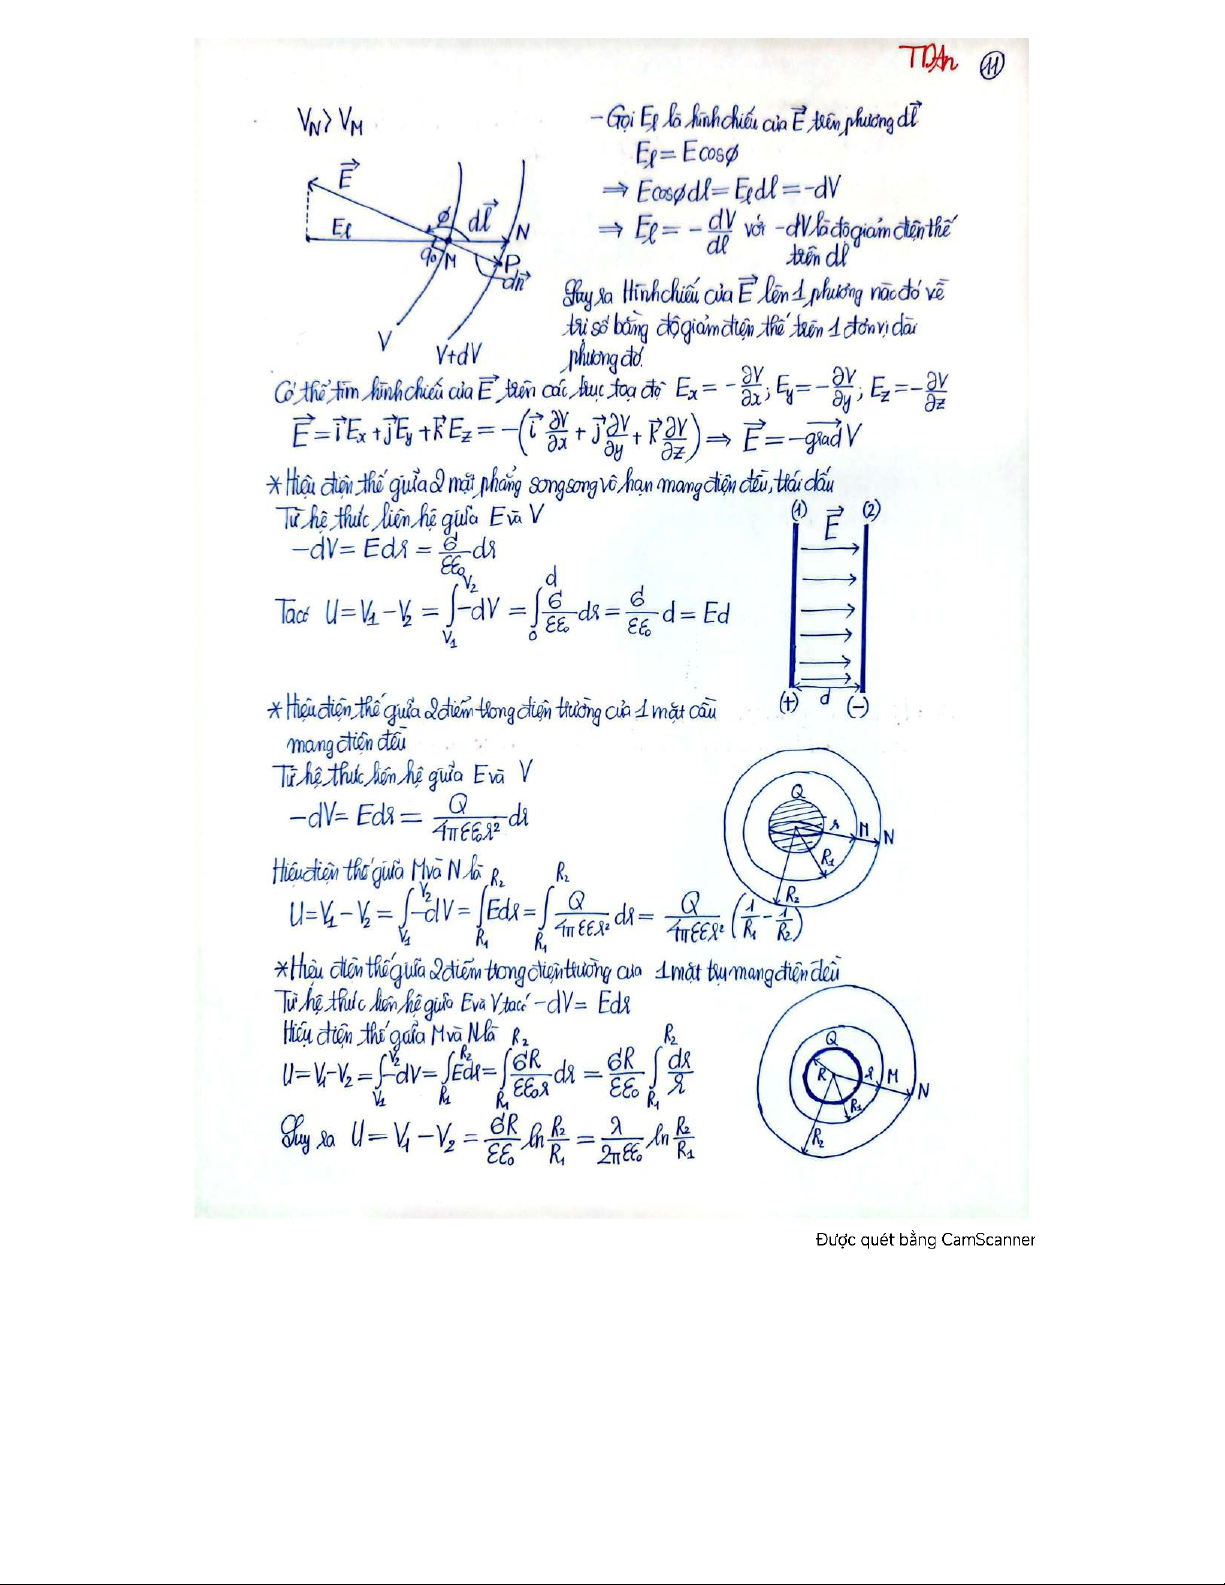 TDAn 11
V_N > V_M
- Gọi Eℓ là hình chiếu của E⃗ trên phương dl⃗
Eℓ = Ecosϕ
⇒ Ecosϕdl = Eℓdl = -dV
⇒ Eℓ = - dV/dl với -dV là độ giảm điện thế
trên dl
E⃗
Eℓ
ϕ
dl⃗
N
q₀
M
P
dn⃗
V
V+dV
Suy ra Hình chiếu của E⃗ lên 1 phương nào đó về
trị số bằng độ giảm điện thế trên 1 đơn vị dài
phương đó.
Có thể tìm hình chiếu của E⃗ trên các trục toạ độ Ex = - ∂V/∂x; Ey = - ∂V/∂y; Ez = - ∂V/∂z
E⃗ = i⃗Ex + j⃗Ey + k⃗Ez = -(i⃗ ∂V/∂x + j⃗ ∂V/∂y + k⃗ ∂V/∂z) ⇒ E⃗ = -grad⃗ V
* Hiệu điện thế giữa 2 mặt phẳng song song vô hạn mang điện đều, trái dấu
Từ hệ thức liên hệ giữa E và V
-dV = Edr = σ/εε₀ dr
Ta có U = V₁ - V₂ = ∫_V₁^V₂ -dV = ∫_0^d σ/εε₀ dr = σ/εε₀ d = Ed
(1) E⃗ (2)
(+) d (-)
* Hiệu điện thế giữa 2 điểm trong điện trường của 1 mặt cầu
mang điện đều
Từ hệ thức liên hệ giữa E và V
-dV = Edr = Q/4πεε₀r² dr
Q
r
M
N
R₁
R₂
Hiệu điện thế giữa M và N là
U = V₁ - V₂ = ∫_V₁^V₂ -dV = ∫_R₁^R₂ Edr = ∫_R₁^R₂ Q/4πεεr² dr = Q/4πεεr² (1/R₁ - 1/R₂)
* Hiệu điện thế giữa 2 điểm trong điện trường của 1 mặt trụ mang điện đều
Từ hệ thức liên hệ giữa E và V ta có -dV = Edr
Hiệu điện thế giữa M và N là
U = V₁ - V₂ = ∫_V₁^V₂ -dV = ∫_R₁^R₂ Edr = ∫_R₁^R₂ σR/εε₀r dr = σR/εε₀ ∫_R₁^R₂ dr/r
Suy ra U = V₁ - V₂ = σR/εε₀ ln R₂/R₁ = λ/2πεε₀ ln R₂/R₁
Q
R
r
M
N
R₁
R₂
Được quét bằng CamScanner